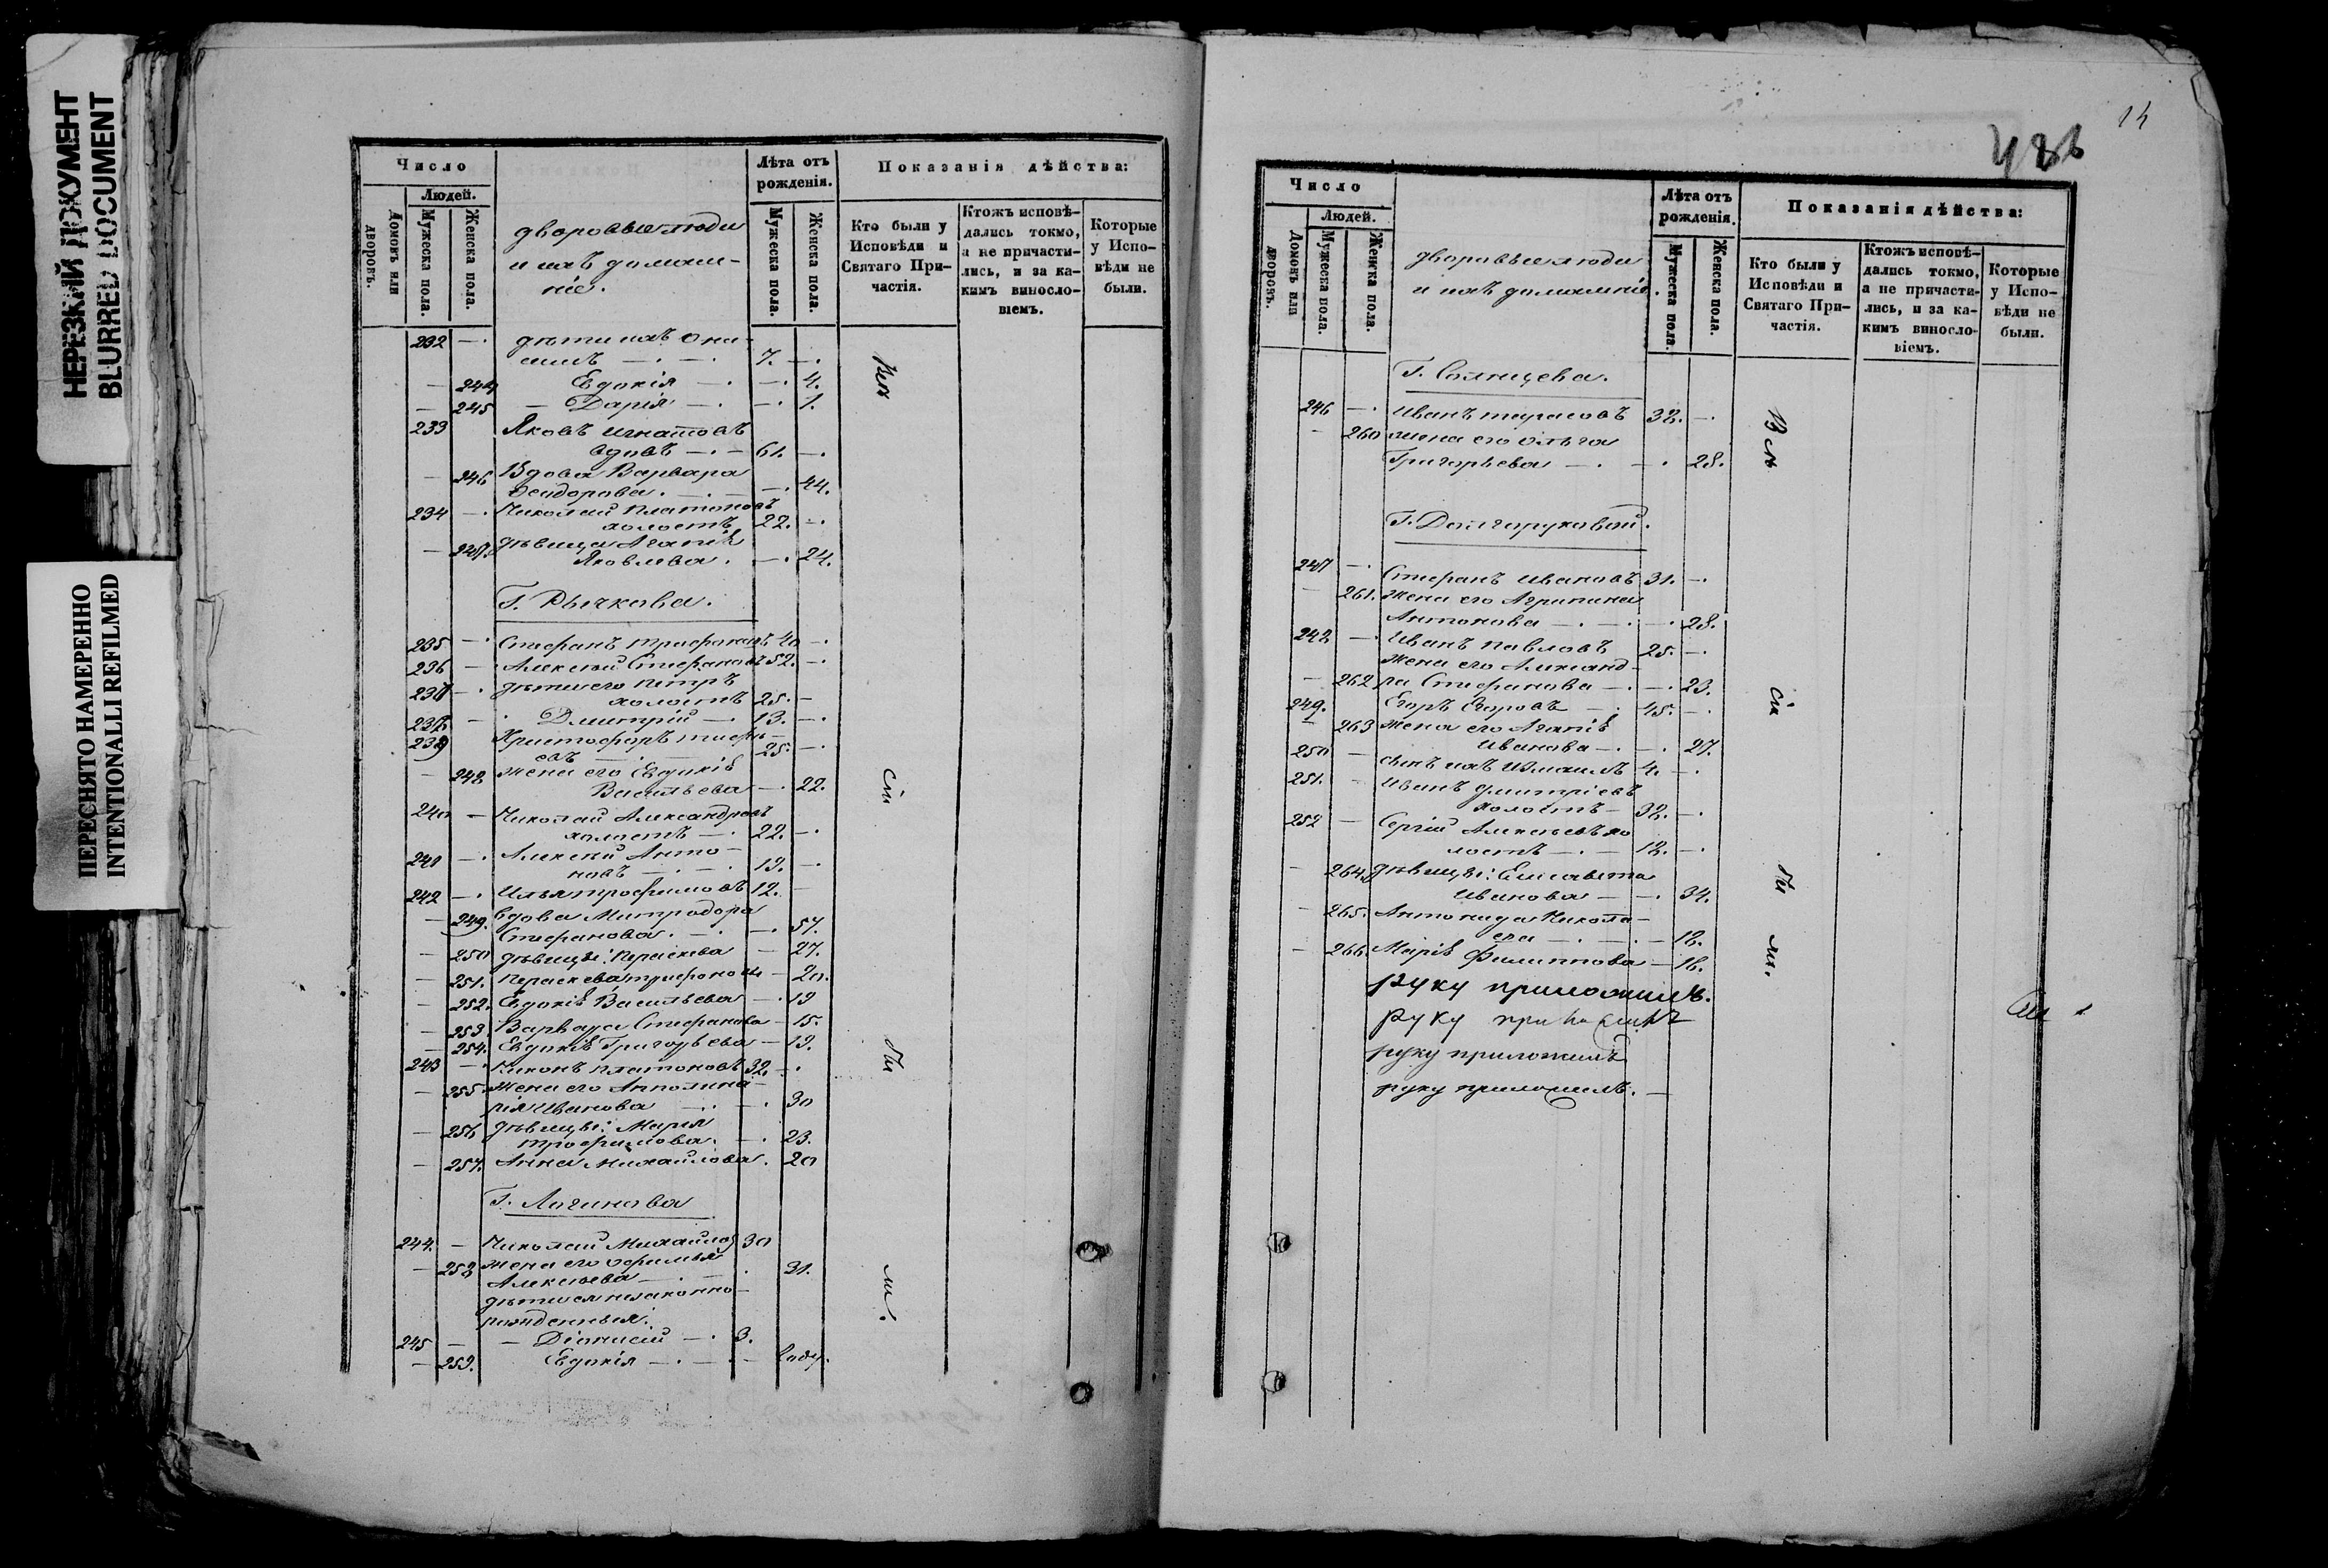 НЕРЕЗКИЙ ДОКУМЕНТ
BLURRED DOCUMENT
ПЕРЕСНЯТО НАМЕРЕННО
INTENTIONALLI REFILMED
Число
Людей.
Домовъ или дворовъ.
Мужеска пола.
Женска пола.
дворовые люди
и ихъ домаш-
ніе.
Лѣта отъ
рожденія.
Мужеска пола.
Женска пола.
Показанія дѣйства:
Кто были у
Исповѣди и
Святаго При-
частія.
Ктожъ исповѣ-
дались токмо,
а не причасти-
лись, и за ка-
кимъ виносло-
віемъ.
Которые
у Испо-
вѣди не
были.
232 —. дѣти ихъ Они-
симъ —. —. 7. —.
— 244 Евдокія —. —. 4.
— 245 — Дарія —. —. 1.
233 Яковъ Игнатовъ
вдовъ —. — 61. —.
— 246 Вдова Варвара
Феодорова. —. —. 44.
234 —. Николай Платоновъ
холостъ 22. —.
— 247. дѣвица Агапія
Яковлева. —. 24.
Г. Рычкова.
235 —. Стефанъ Трифоновъ 40 —.
236 —. Алексій Стефановъ 52. —.
237 —. дѣти его Петръ
холостъ 25. —
238. —. Дмитрій —. 13. —.
239 Христофоръ
евъ —. — 25. —.
— 248. жена его Евдокія
Васильева —. 22.
240 — Николай Александровъ
холостъ —. 22. —.
241 —. Алексій Анто-
новъ —. —. 19. —.
242 —. Илья Трофимовъ 12. —
— 249. вдова Митродора
Стефанова. —. —. 57.
— 250 дѣвицы: Параскева — 27.
— 251. Параскева Трифонова — 20.
— 252. Евдокія Васильева —. 19
— 253. Варвара Стефанова — 15.
— 254. Евдокія Григорьева — 19.
243 —. Никонъ Платоновъ 32. —.
— 255 жена его Апполина-
рія Иванова —. —. 30
— 256 дѣвицы: Марія
Трофимова. —. 23.
— 257. Анна Михайлова. 20
Г. Логинова
244. — Николай Михайлов 30
— 258 жена его Ефимья
Алексѣева —. —. 31.
дѣти ея незаконно-
рожденныя:
245 — — Діонисій —. 3.
— 259. Евдокія —. —. —
Всѣ
сіи
бы
ли.
486
14
Число
Людей.
Домовъ или дворовъ.
Мужеска пола.
Женска пола.
дворовые люди
и ихъ домашніе.
Лѣта отъ
рожденія.
Мужеска пола.
Женска пола.
Показанія дѣйства:
Кто были у
Исповѣди и
Святаго При-
частія.
Ктожъ исповѣ-
дались токмо,
а не причасти-
лись, и за ка-
кимъ виносло-
віемъ.
Которые
у Испо-
вѣди не
были.
Г. Солнцева.
246 —. Иванъ Тарасовъ 32. —.
— 260 жена его Ольга
Григорьева —. —. 28.
Г. Долгоруковой.
247 —. Стефанъ Ивановъ 31. —.
— 261. жена его Агрипина
Антонова —. —. —. 28.
248 —. Иванъ Павловъ 25. —.
жена его Александ-
— 262 ра Стефанова —. —. 23.
249. Егоръ Егоровъ —. 45. —.
— 263 жена его Агапія
Иванова —. —. 27.
250 — сынъ ихъ Измаилъ 4. —.
251. — Иванъ Дмитріевъ
холостъ — 32. —.
252 — Сергій Алексѣевъ хо
лостъ —. — 18. —.
— 264. дѣвицы: Елисавета
Иванова — —. 34.
— 265. Антонида Никола-
ева —. —. — 18.
— 266. Марія Филиппова — 16.
руку приложилъ.
руку приложилъ
руку приложилъ
руку приложилъ. —
Всѣ
сіи
бы
ли.